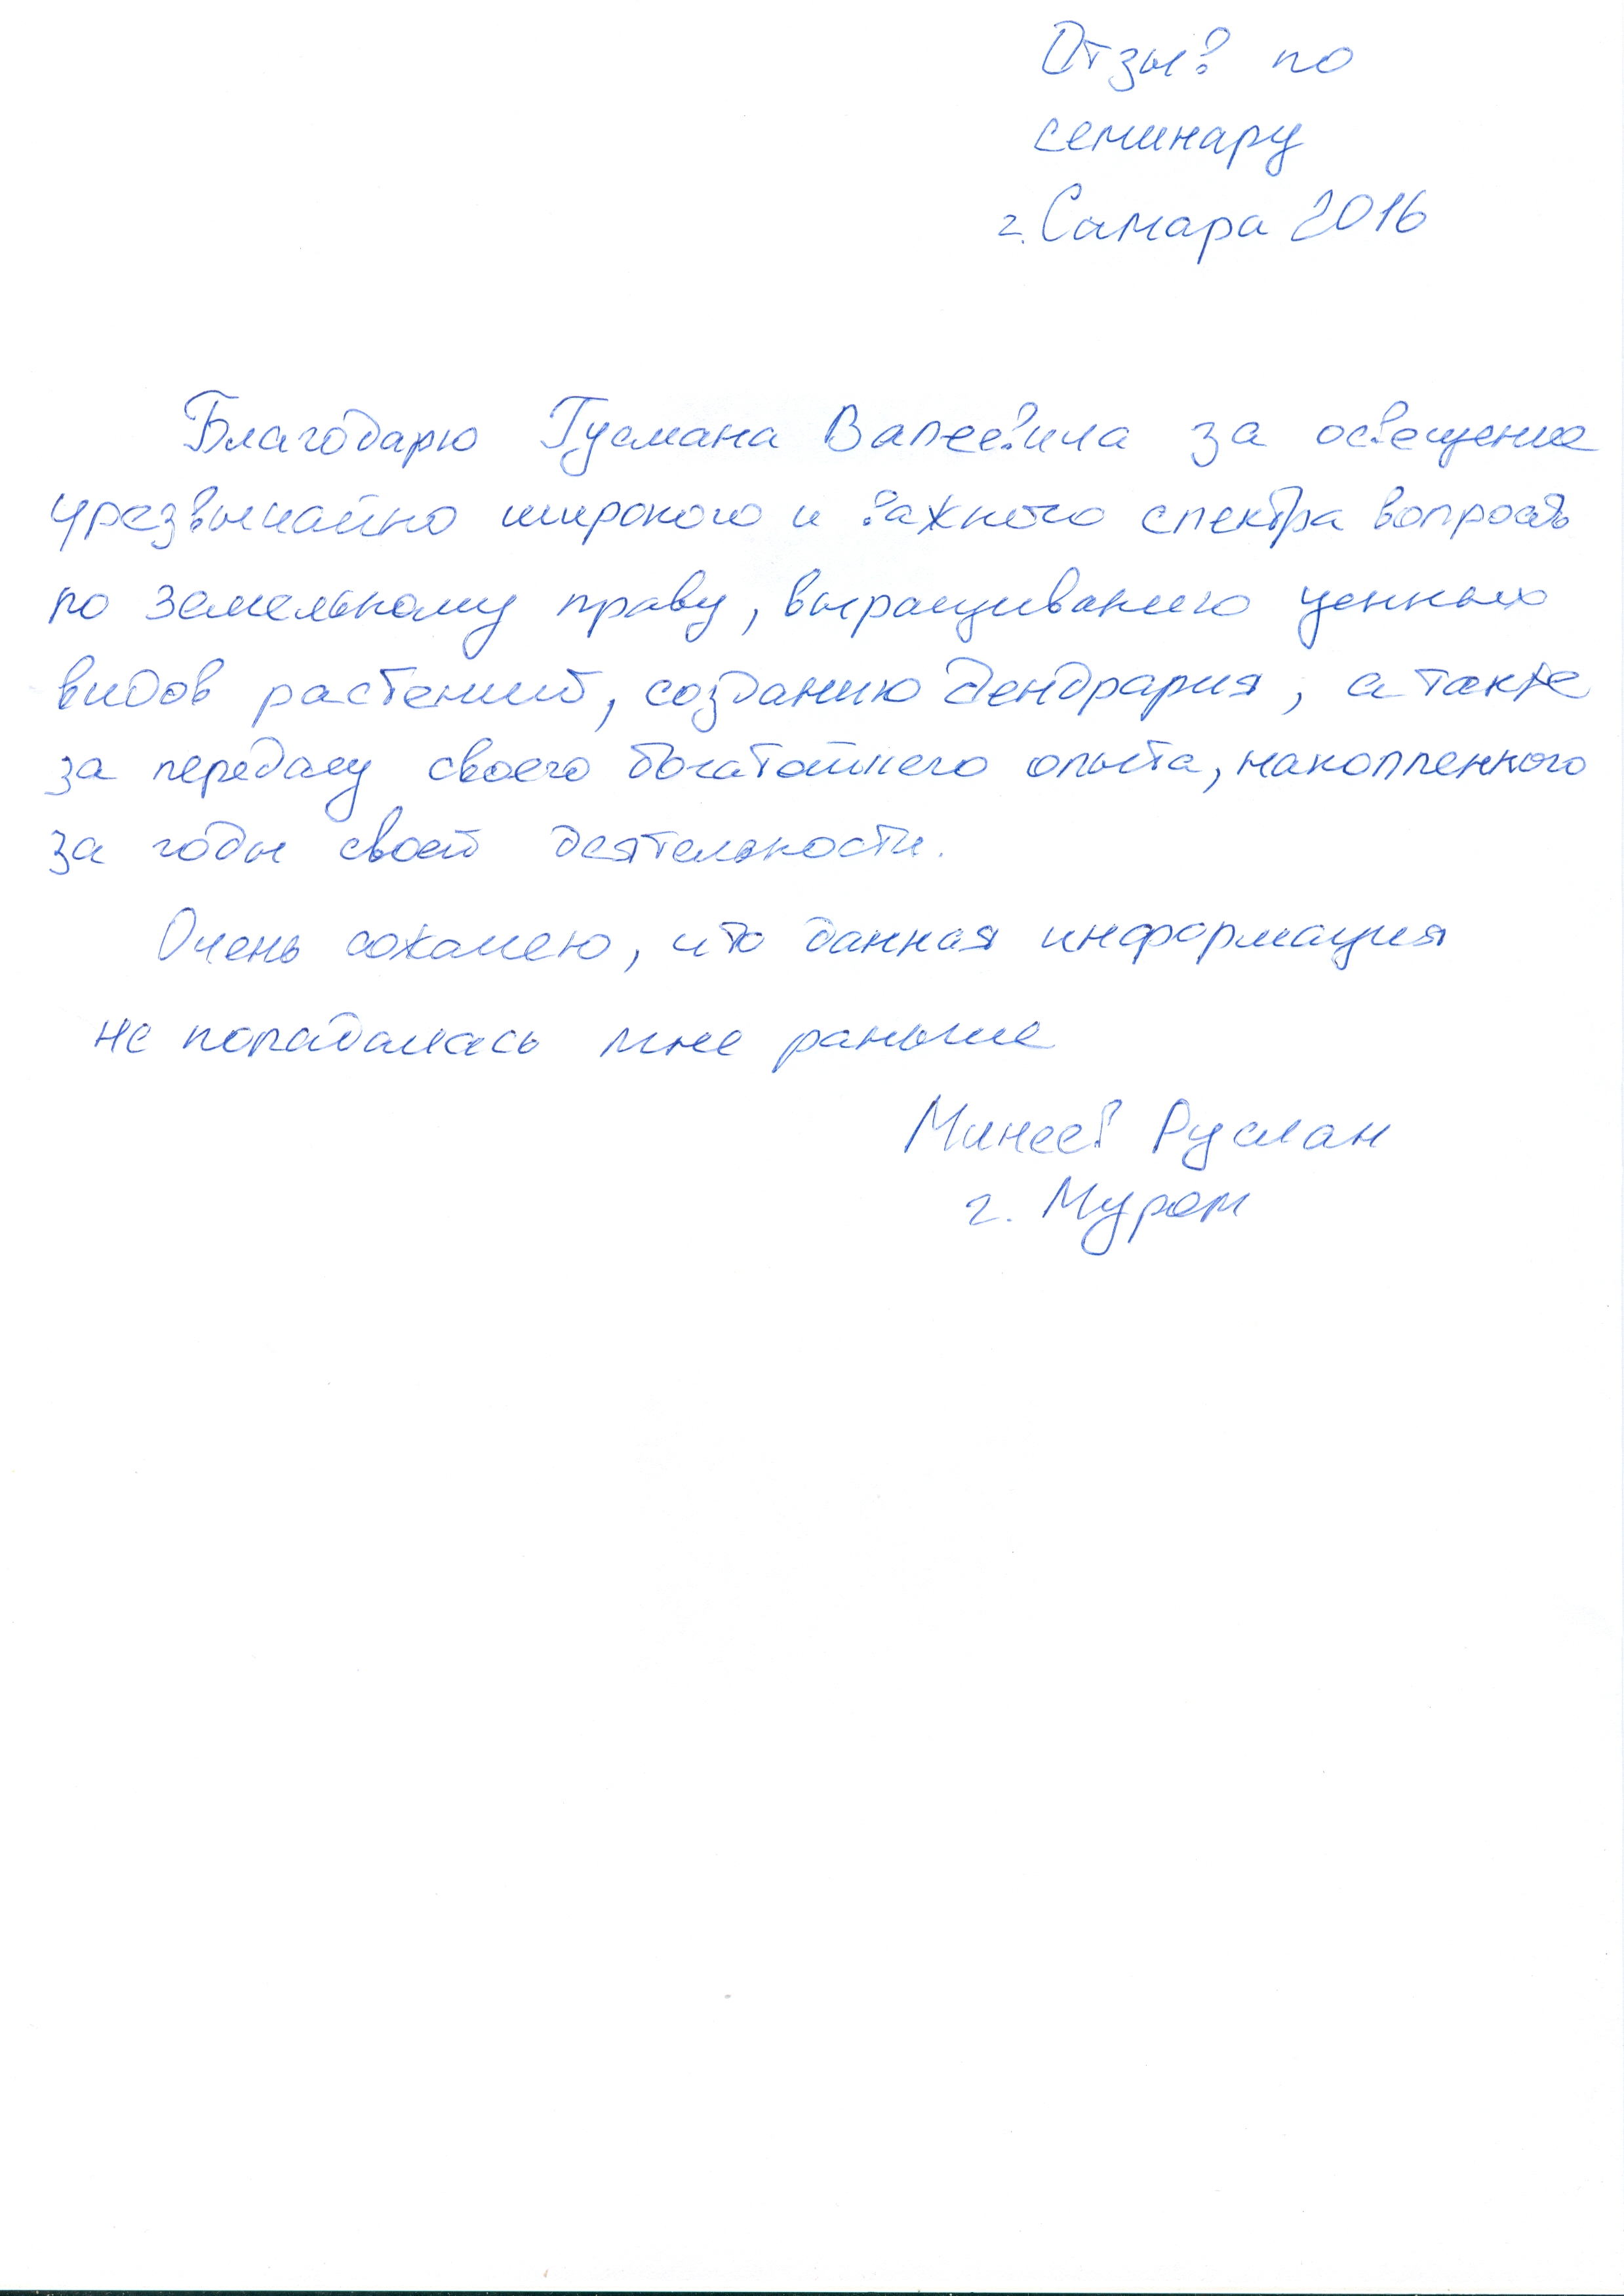 Отзыв по
семинару
г. Самара 2016
Благодарю Гусмана Валеевича за освещение
чрезвычайно широкого и важного спектра вопросов
по земельному праву, выращиванию ценных
видов растений, созданию дендрария, а также
за передачу своего богатейшего опыта, накопленного
за годы своей деятельности.
Очень сожалею, что данная информация
не попадалась мне раньше
Минеев Руслан
г. Муром